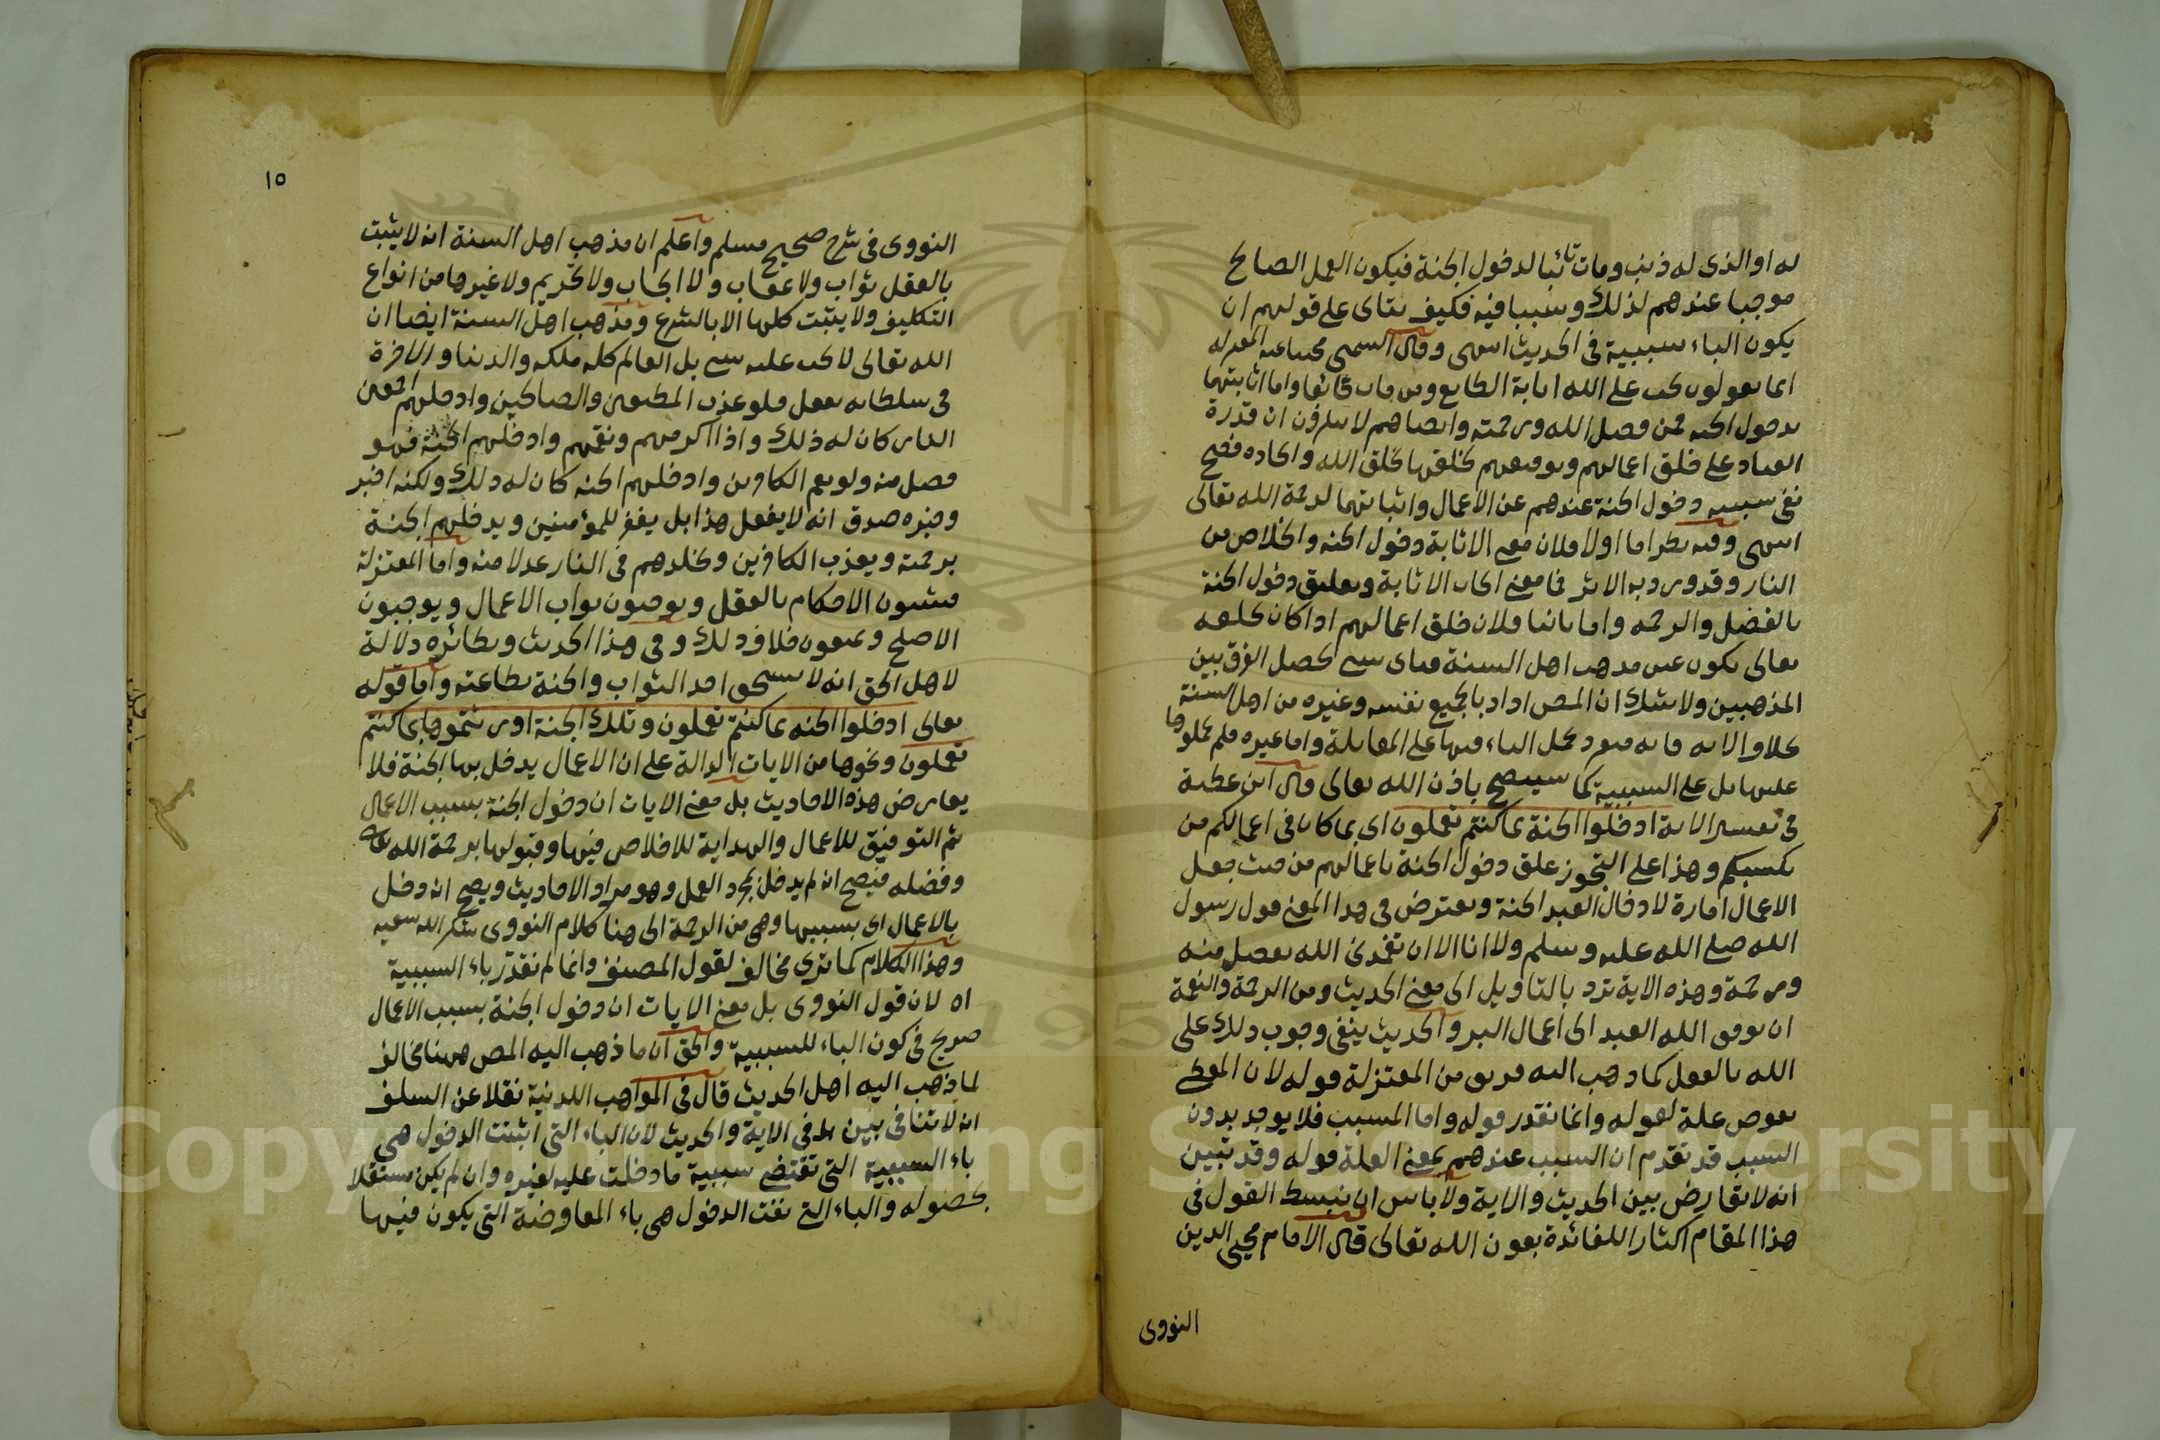 له او الذى له ذنب ومات تائبا لدخول الجنة فيكون العمل الصالح
موجبا عندهم لذلك وسببا فيه فكيف يتاى على قولهم ان
يكون الباء سببية فى الحديث انتهى وقال الشمنى المعتزله
انما يقولون يجب على الله اثابة الطايع ومن مات تائبا واما اثابتهما
بدخول الجنه فمن فضل الله ورحمته وايضا هم لا ينكرون ان قدرة
العباد على خلق اعمالهم وتوفيقهم لخلقها بخلق الله وايجاده فصح
نفى سببيه دخول الجنة عندهم عن الاعمال واثباتهما لرحمة الله تعالى
انتهى وفيه نظر اما اولا فلان معنى الاثابة دخول الجنه والخلاص من
النار وقد ورد به الاثر فما معنى ايجاب الاثابة وتعليق دخول الجنة
بالفضل والرحمه واما ثانيا فلان خلق اعمالهم اذا كان بخلقه
تعالى يكون عين مذهب اهل السنة فباى شى يحصل الفرق بين
المذهبين ولا شك ان المص اراد بالجميع نفسه وغيره من اهل السنة
كلا والا يه فانه محمل الباء فيها على المقابلة واما غيره فلم يحملوها
عليها بل على السببية كما سيصح باذن الله تعالى قال ابن عطية
فى تفسير الاية ادخلوا الجنة بما كنتم تعملون اى بما كان فى اعمالكم من
تكسبكم وهذا على التجوز علق دخول الجنة باعمالهم من حيث جعل
الاعمال امارة لادخال العبد الجنة ويعترض فى هذا المعنى قول رسول
الله صلى الله عليه وسلم ولا انا الا ان تغمدنى الله بفضل منه
ورحمة وهذه الاية ترد بالتاويل الى معنى الحديث ومن الرحمة والنعمة
ان يوفق الله العبد الى اعمال البر والحديث ينفى وجوب ذلك على
الله بالعقل كما ذهب اليه فريق من المعتزلة قوله لان المعطى
بعوض علة لقوله وانما نقدر قوله واما المسبب فلا يوجد بدون
السبب قد تقدم ان السبب عندهم بمعنى العلة قوله وقد تبين
انه لا تعارض بين الحديث والاية ولا باس ان نبسط القول فى
هذا المقام اكثارا للفائدة بعون الله تعالى قال الامام محيى الدين
النووى
١٥
النووى فى شرح صحيح مسلم واعلم ان مذهب اهل السنة انه لا يثبت
بالعقل ثواب ولا عقاب ولا ايجاب ولا تحريم ولا غيرها من انواع
التكليف ولا يثبت كلها الا بالشرع ومذهب اهل السنة ايضا ان
الله تعالى لا يجب عليه شى بل العالم كله ملكه والدنيا والاخرة
فى سلطانه يفعل فلو عذب المطيعين والصالحين وادخلهم اجمعين
النار كان له ذلك واذا اكرمهم ونعمهم وادخلهم الجنة فهو
فضل منه ولو نعم الكافرين وادخلهم الجنه كان له ذلك ولكنه اخبر
وخبره صدق انه لا يفعل هذا بل يغفر للمؤمنين ويدخلهم الجنة
برحمته ويعذب الكافرين ويخلدهم فى النار عدلا منه واما المعتزلة
فيثبتون الاحكام بالعقل ويوجبون ثواب الاعمال ويوجبون
الاصلح ويمنعون خلاف ذلك وفى هذا الحديث ونظائره دلالة
لاهل الحق انه لا يستحق احد الثواب والجنة بطاعته واما قوله
تعالى ادخلوا الجنه بما كنتم تعملون وتلك الجنة اورثتموها بما كنتم
تعملون ونحوها من الايات الدالة على ان الاعمال يدخل بها الجنة فلا
يعارض هذه الاحاديث بل معنى الايات ان دخول الجنة بسبب الاعمال
ثم التوفيق للاعمال والهداية للاخلاص فيها وقبولها برحمة الله تعالى
وفضله فيصح انه لم يدخل بمجرد العمل وهو مراد الاحاديث ويصح انه دخل
بالاعمال اى بسببها وهى من الرحمة الى هنا كلام النووى شكر الله سعيه
وهذا الكلام كما ترى مخالف لقول المصنف وانما لم نقدر باء السببية
اه لان قول النووى بل معنى الايات ان دخول الجنة بسبب الاعمال
صريح فى كون الباء للسببية والحق ان ما ذهب اليه المص ههنا مخالف
لما ذهب اليه اهل الحديث قال فى المواهب اللدنية نقلا عن السلف
انه لا تنافى بين ما فى الاية والحديث لان الباء التى اثبتت الدخول هى
باء السببية التى تقتضى سببية ما دخلت عليه لغيره وان لم يكن مستقلا
بحصوله والباء التى نفت الدخول هى باء المعاوضة التى يكون فيها
Copyright © King Saud University
195